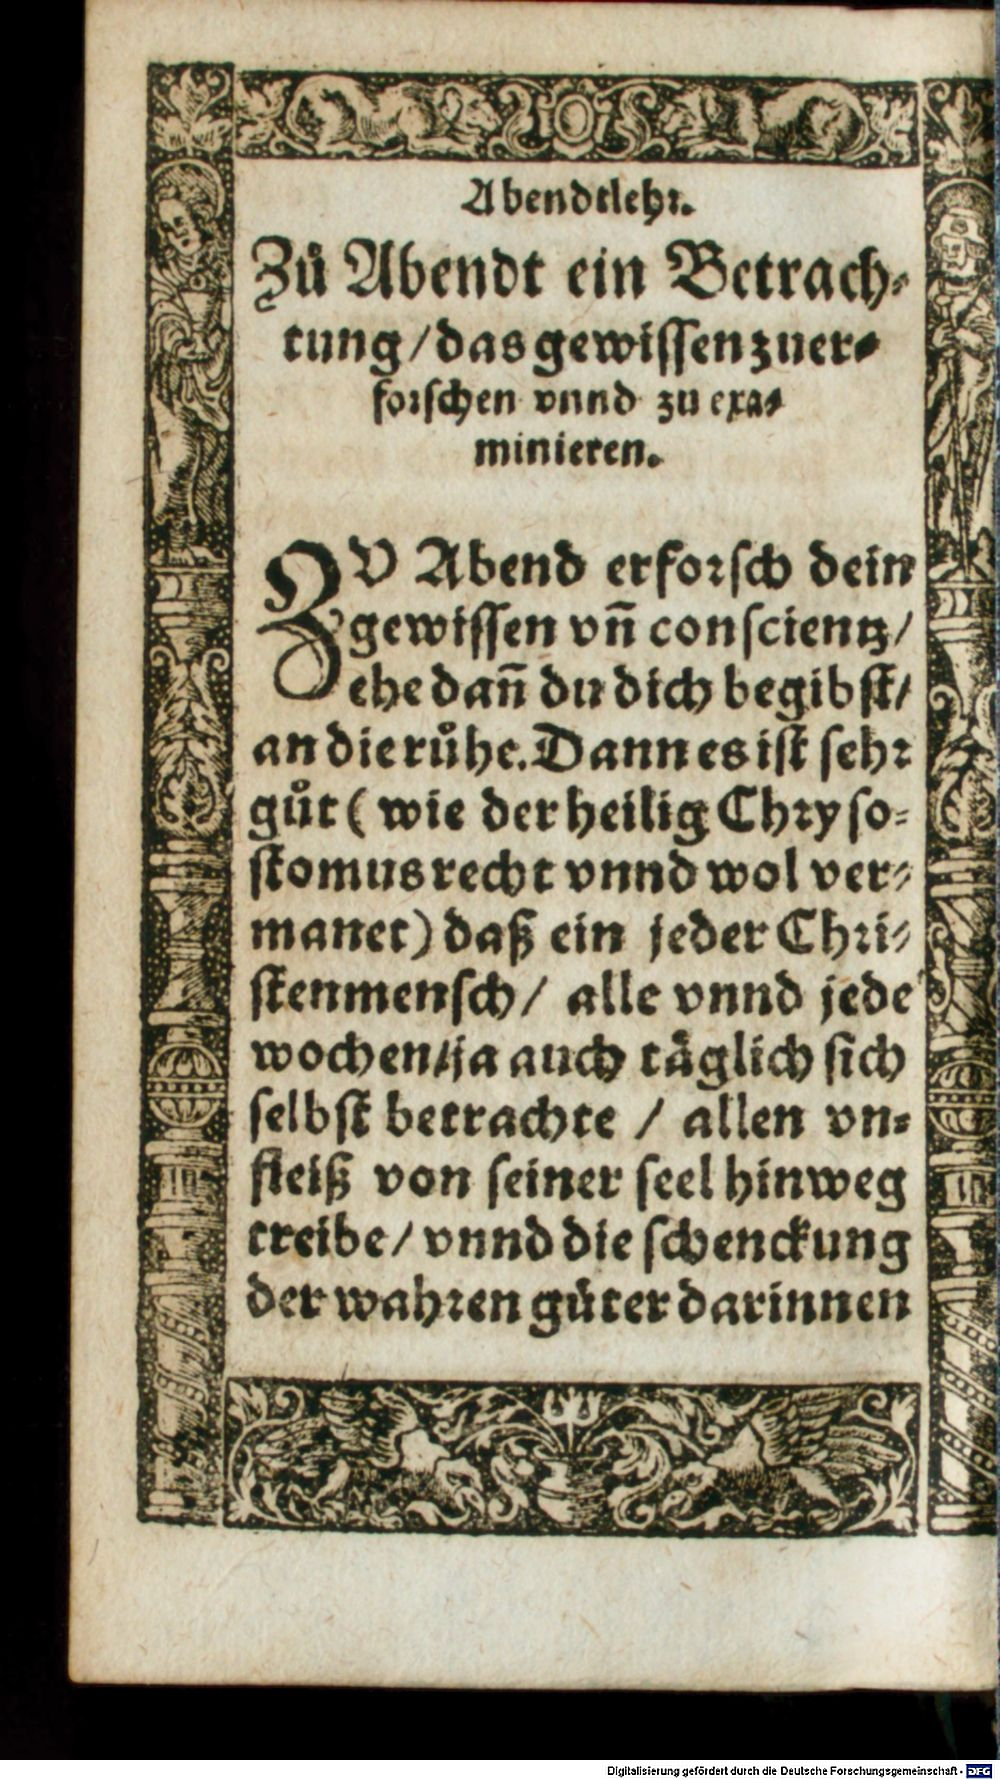 Abendtlehr.
Zů Abendt ein Betrach-
tung/das gewissen zuer-
forschen vnnd zu exa-
minieren.
ZV Abend erforsch dein
gewissen vn̄ conscientz/
ehe dan̄ du dich begibst/
an die růhe. Dann es ist sehr
gůt (wie der heilig Chryso-
stomus recht vnnd wol ver-
manet) daß ein jeder Chri-
stenmensch/ alle vnnd jede
wochen/ja auch täglich sich
selbst betrachte / allen vn-
fleiß von seiner seel hinweg
treibe/ vnnd die schenckung
der wahren güter darinnen
Digitalisierung gefördert durch die Deutsche Forschungsgemeinschaft - DFG